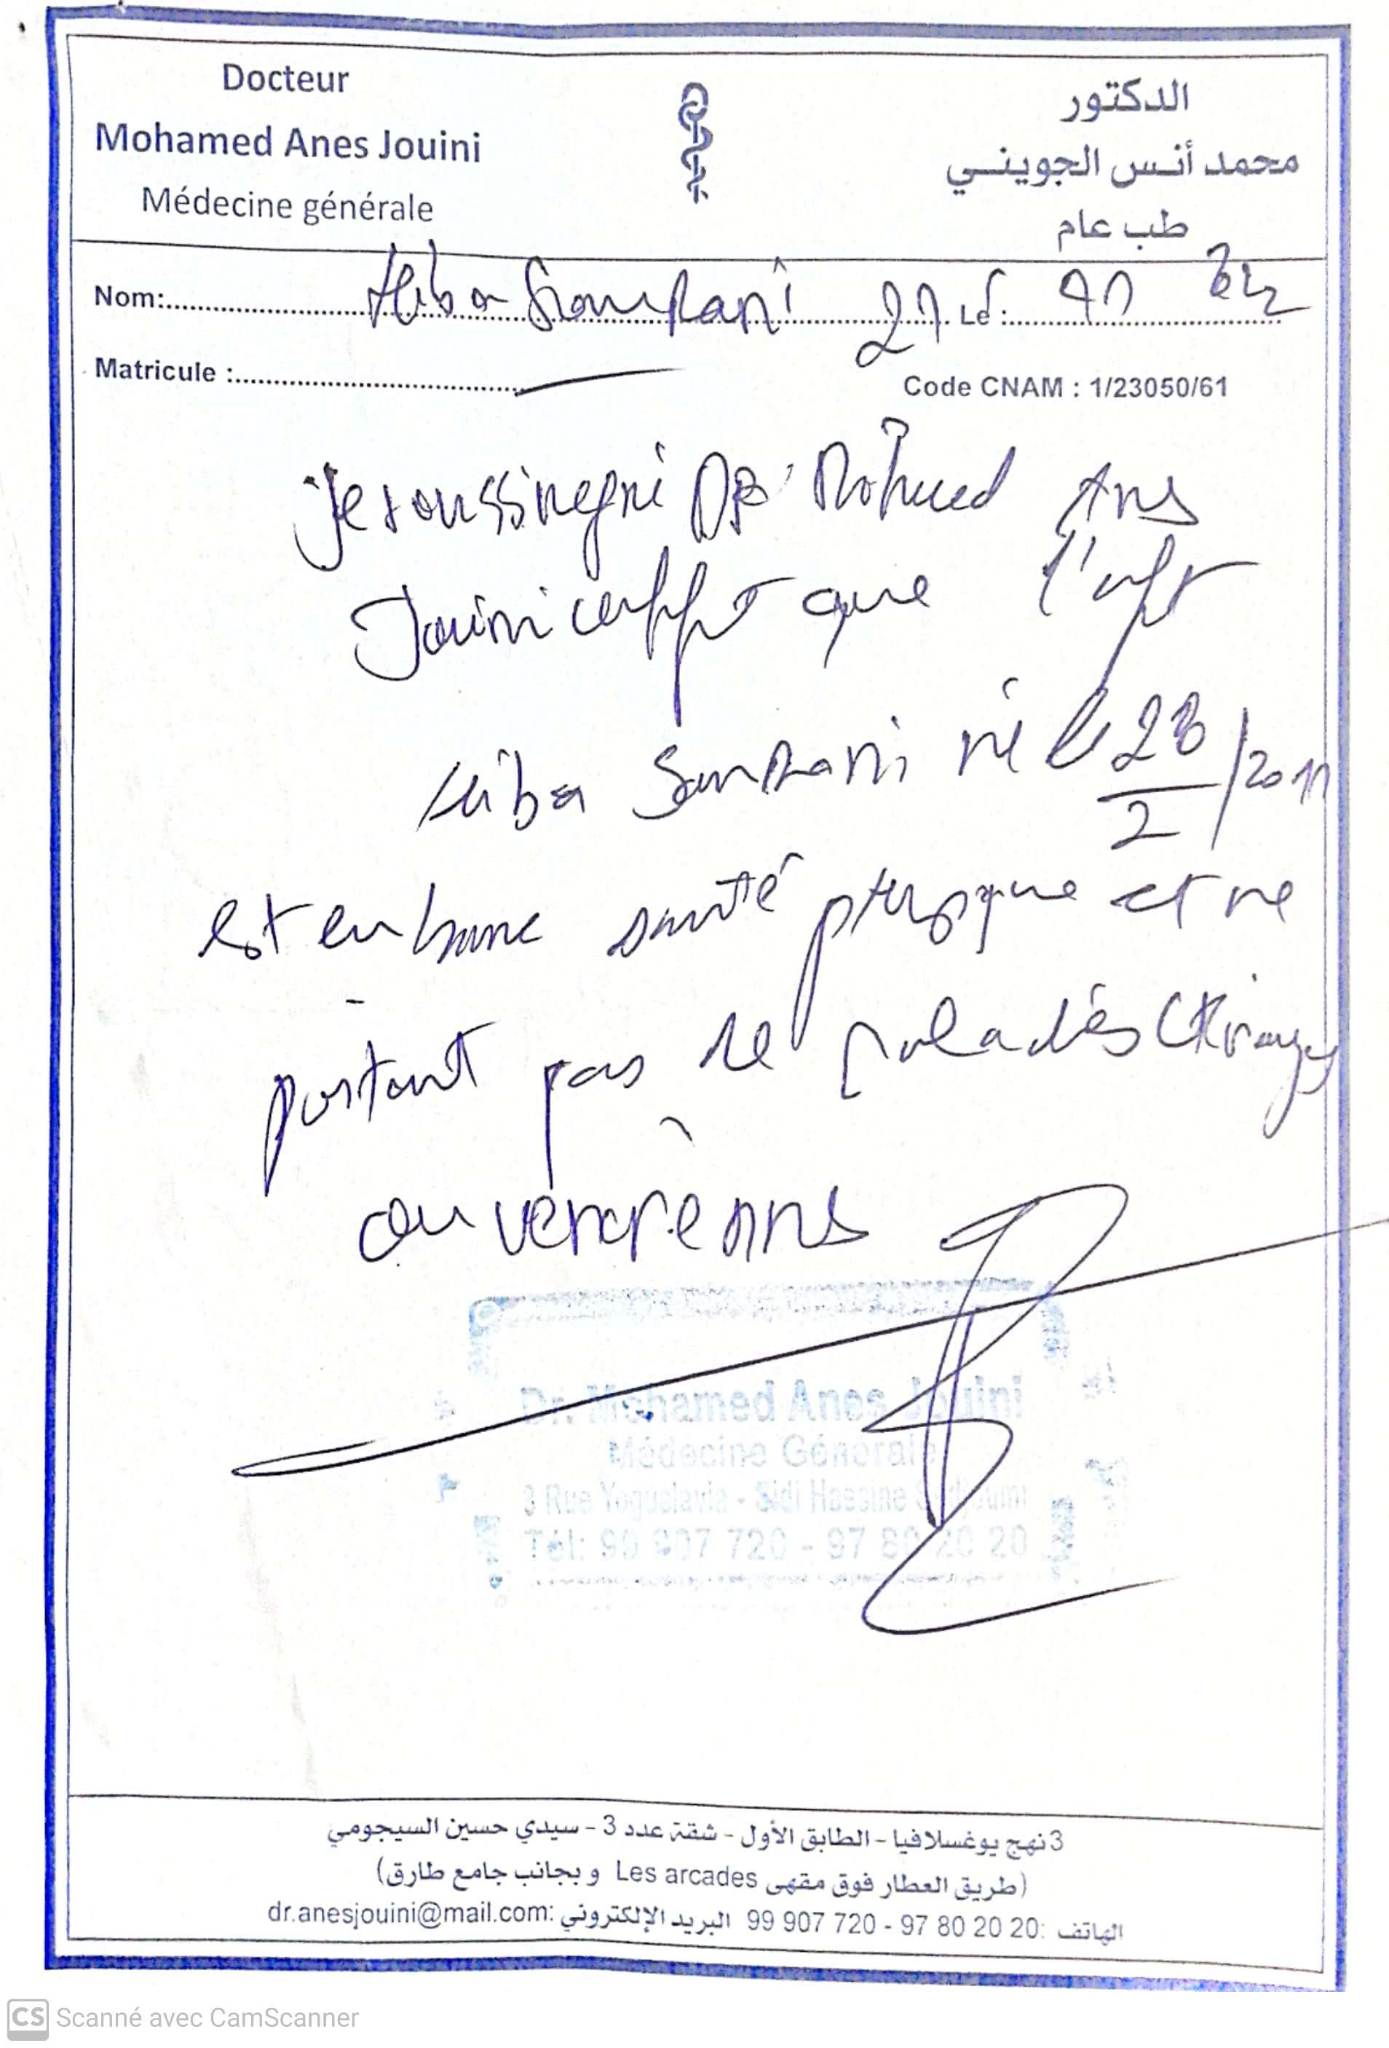 Docteur
Mohamed Anes Jouini
Médecine générale
الدكتور
محمد أنس الجويني
طب عام
Nom: Hiba Le :
Matricule :
Code CNAM : 1/23050/61
Je soussigné Dr Mohamed Ans
Jouini que l'
Hiba né le 28/2/2011
est en bonne santé physique et ne
portant pas de maladies
ou vénériennes
Dr. Mohamed Anes Jouini
Médecine Générale
3 Rue Yogoslavia - Sidi Hassine Sedjoumi
Tél: 99 907 720 - 97 80 20 20
3 نهج يوغسلافيا - الطابق الأول - شقة عدد 3 - سيدي حسين السيجومي
(طريق العطار فوق مقهى Les arcades و بجانب جامع طارق)
الهاتف :20 20 80 97 - 720 907 99 البريد الإلكتروني :dr.anesjouini@mail.com
CS Scanné avec CamScanner